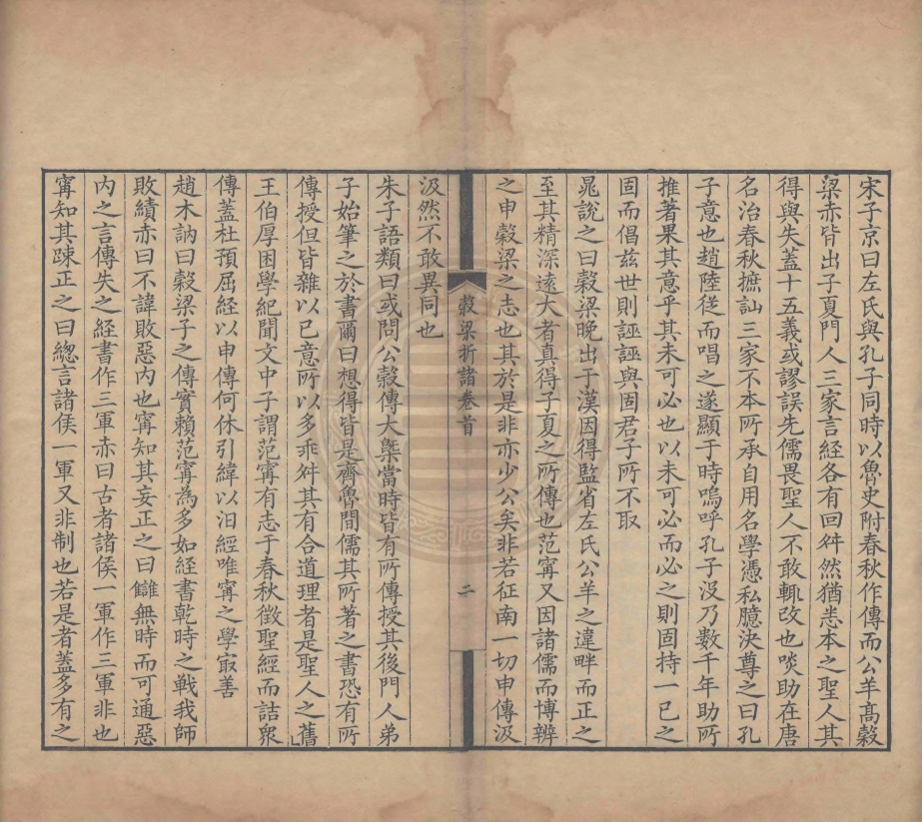 宋子京曰左氏與孔子同時以魯史附春秋作傳而公羊髙穀
梁赤皆出子夏門人三家言經各有回舛然猶悉本之聖人其
得與失蓋十五義或謬誤先儒畏聖人不敢輒改也啖助在唐
名治春秋摭訕三家不本所承自用名學憑私臆決尊之曰孔
子意也趙陸從而唱之遂顯于時嗚呼孔子沒乃數千年助所
推著果其意乎其未可必也以未可必而必之則固持一己之
固而倡玆世則誣誣與固君子所不取
晁說之曰穀梁晚出于漢因得監省左氏公羊之違畔而正之
至其精深遠大者真得子夏之所傳也范甯又因諸儒而博辨
之申穀梁之志也其於是非亦少公矣非若征南一切申傳汲
穀梁折諸卷首
二
汲然不敢異同也
朱子語類曰或問公穀傳大槩當時皆有所傳授其後門人弟
子始筆之於書爾曰想得皆是齊魯間儒其所著之書恐有所
傳授但皆雜以已意所以多乖舛其有合道理者是聖人之舊
王伯厚困學紀聞文中子謂范甯有志于春秋徵聖經而詰衆
傳蓋杜預屈經以申傳何休引緯以汨經唯甯之學㝡善
趙木訥曰穀梁子之傳實賴范甯為多如經書乾時之戰我師
敗績赤曰不諱敗惡内也甯知其妄正之曰讎無時而可通惡
内之言傳失之經書作三軍赤曰古者諸侯一軍作三軍非也
甯知其踈正之曰總言諸侯一軍又非制也若是者蓋多有之